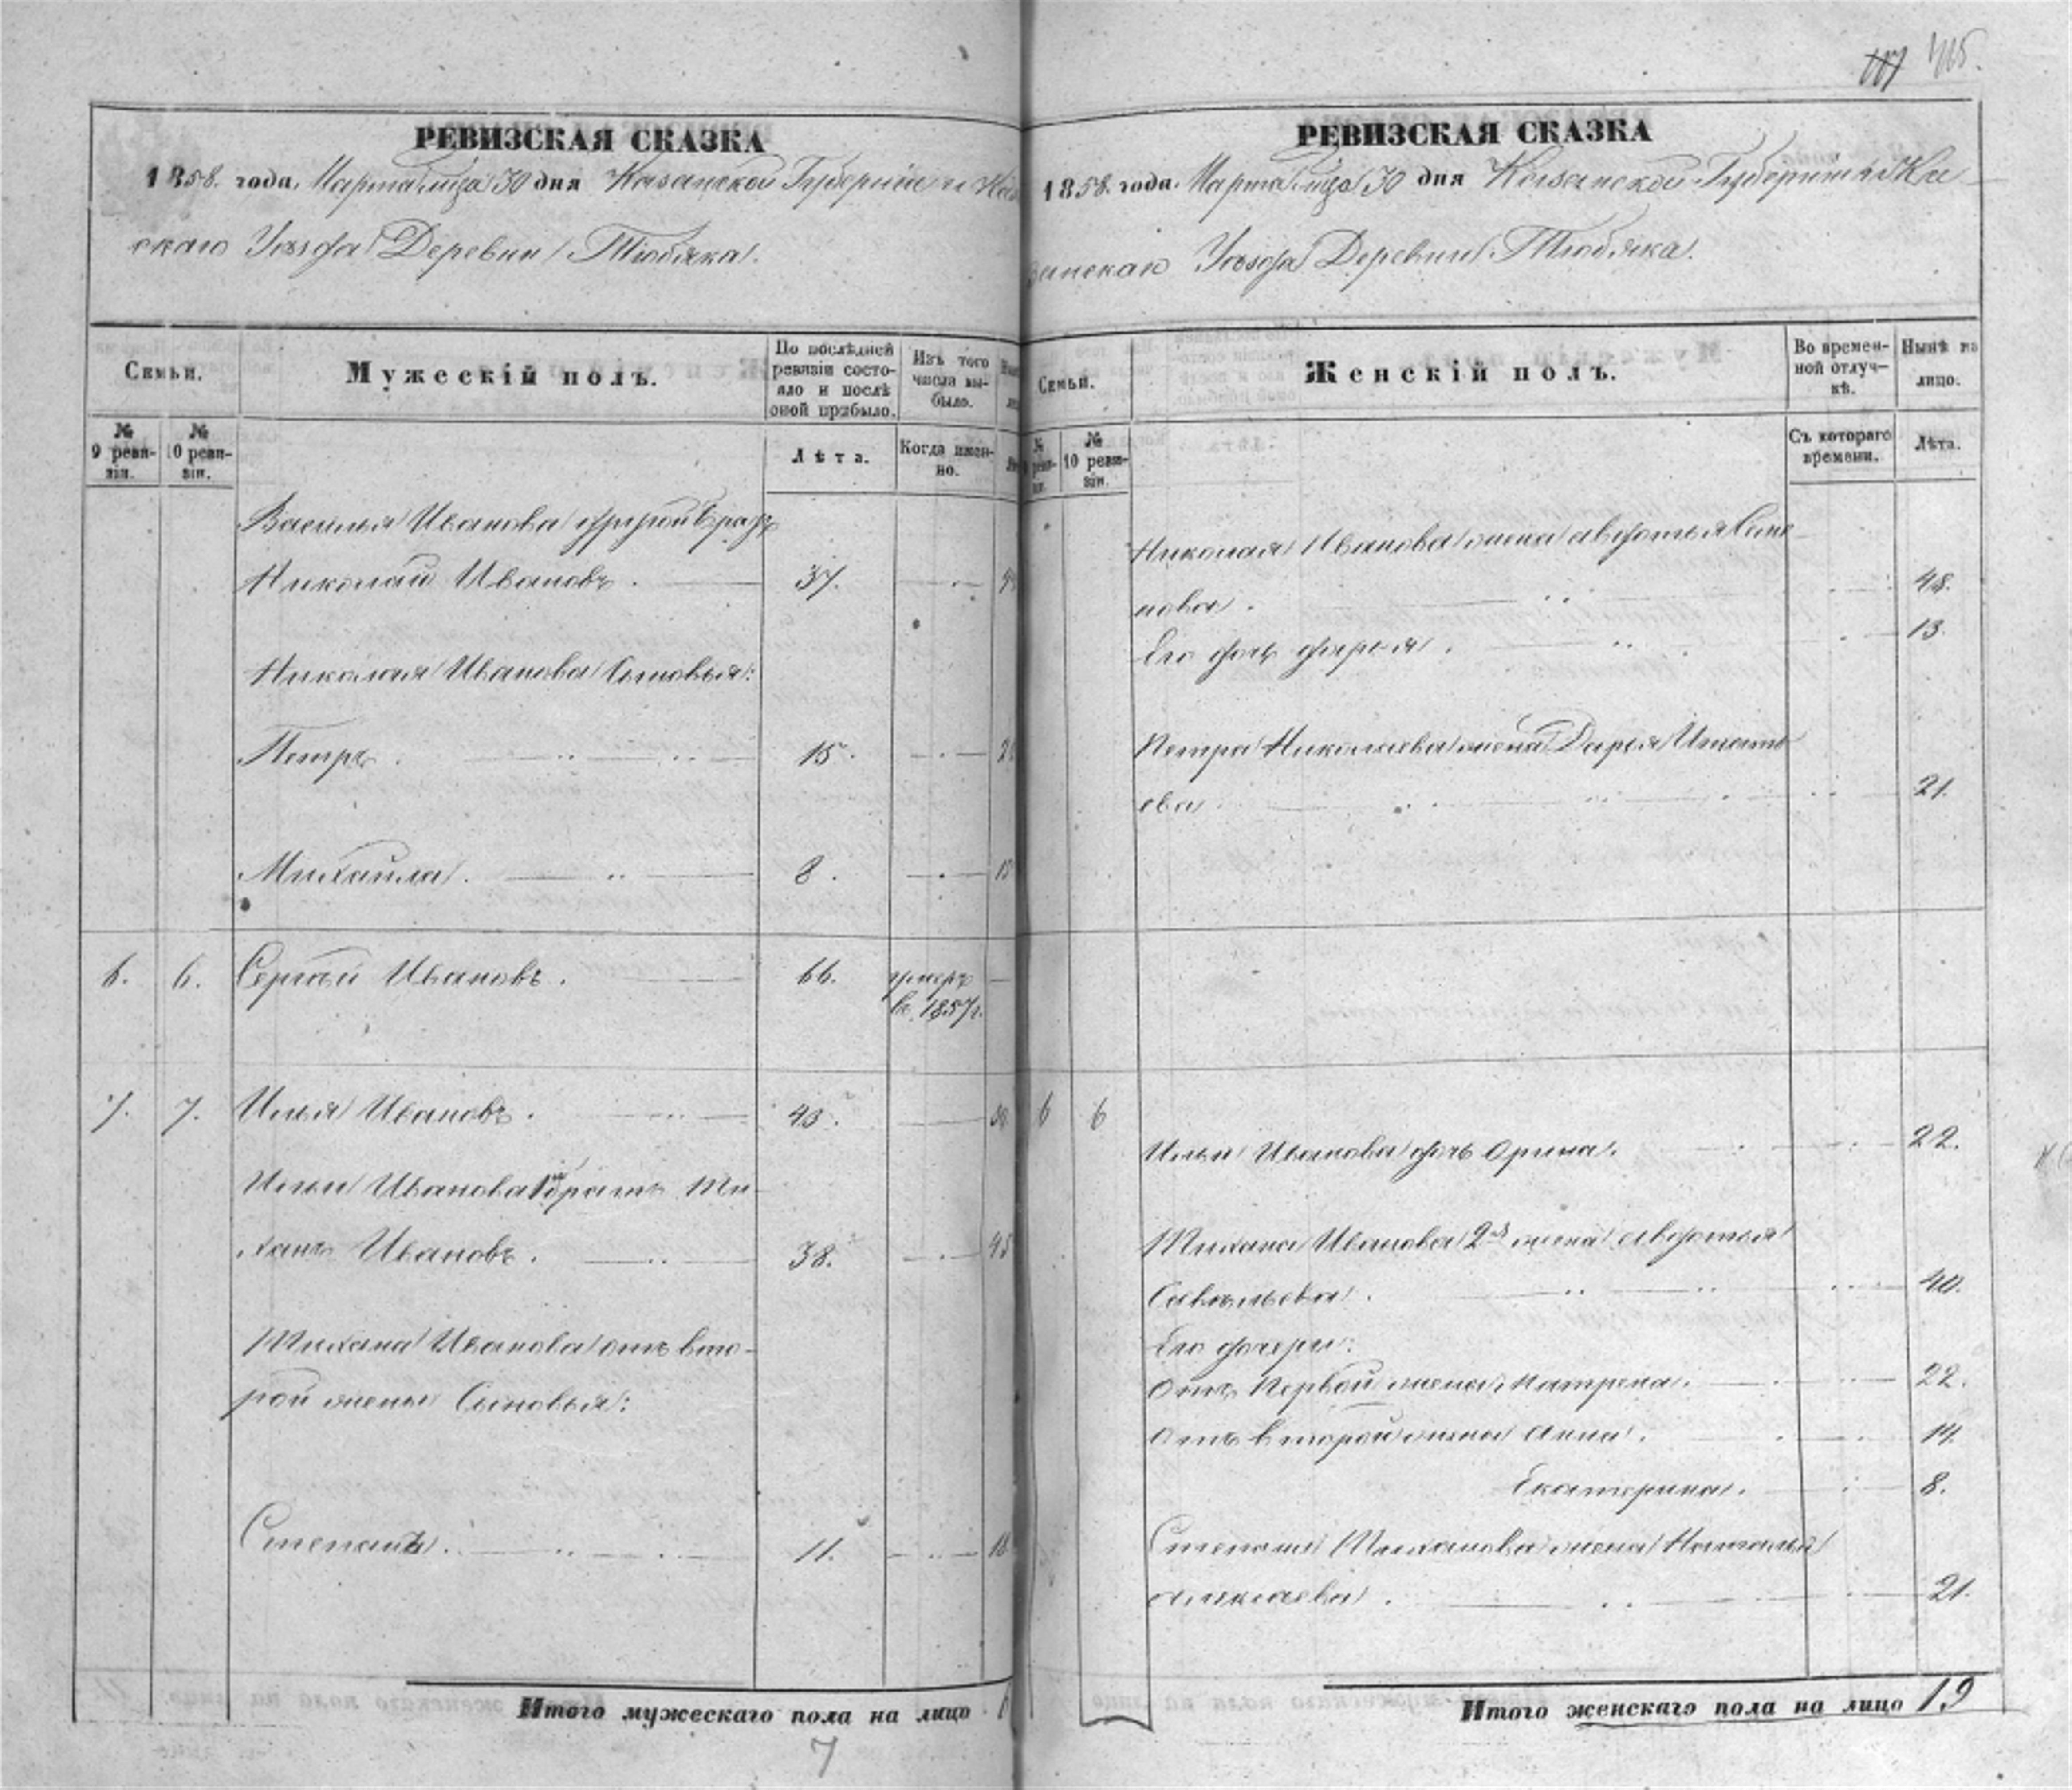 415.
РЕВИЗСКАЯ СКАЗКА
1858. года. Марта м-ца 30 дня Казанской Губернии и Каз
скаго Уѣзда Деревни Тюбяка.
Семьи.
Мужескій полъ.
По послѣдней ревизіи состояло и послѣ оной прибыло.
Изъ того числа выбыло.
№ 9 ревизіи.
№ 10 ревизіи.
Лѣта.
Когда именно.
Василья Иванова другой братъ
Николай Ивановъ. 37.
Николая Иванова сыновья:
Петръ. 15.
Михайла. 8.
6. 6. Сергѣй Ивановъ. 66. умеръ
въ 1857 г.
7. 7. Илья Ивановъ. 43.
Ильи Иванова 1й братъ Ти-
ханъ Ивановъ. 38. 45
Тихана Иванова отъ вто-
рой жены сыновья:
Степанъ. 11. 18
Итого мужескаго пола на лицо
7
РЕВИЗСКАЯ СКАЗКА
1858. года. Марта м-ца 30 дня Казанской Губерніи и Ка
занскаго Уѣзда Деревни Тюбяка.
Семьи.
Женскій полъ.
Во временной отлучкѣ.
Нынѣ на лицо.
№ 10 ревизіи.
Съ котораго времени.
Лѣта.
Николая Иванова жена Авдотья Семе
нова. 48.
Его дочь Дарья. 13.
Петра Николаева жена Дарья Игнать
ева. 21.
6 6
Ильи Иванова дочь Орина. 22.
Тихана Иванова 2я жена Авдотья
Савельева. 40.
Его дочери:
Отъ первой жены Матрена. 22.
Отъ второй жены Анна. 14.
Екатерина. 8.
Степана Тиханова жена Наталья
21.
Итого женскаго пола на лицо 19